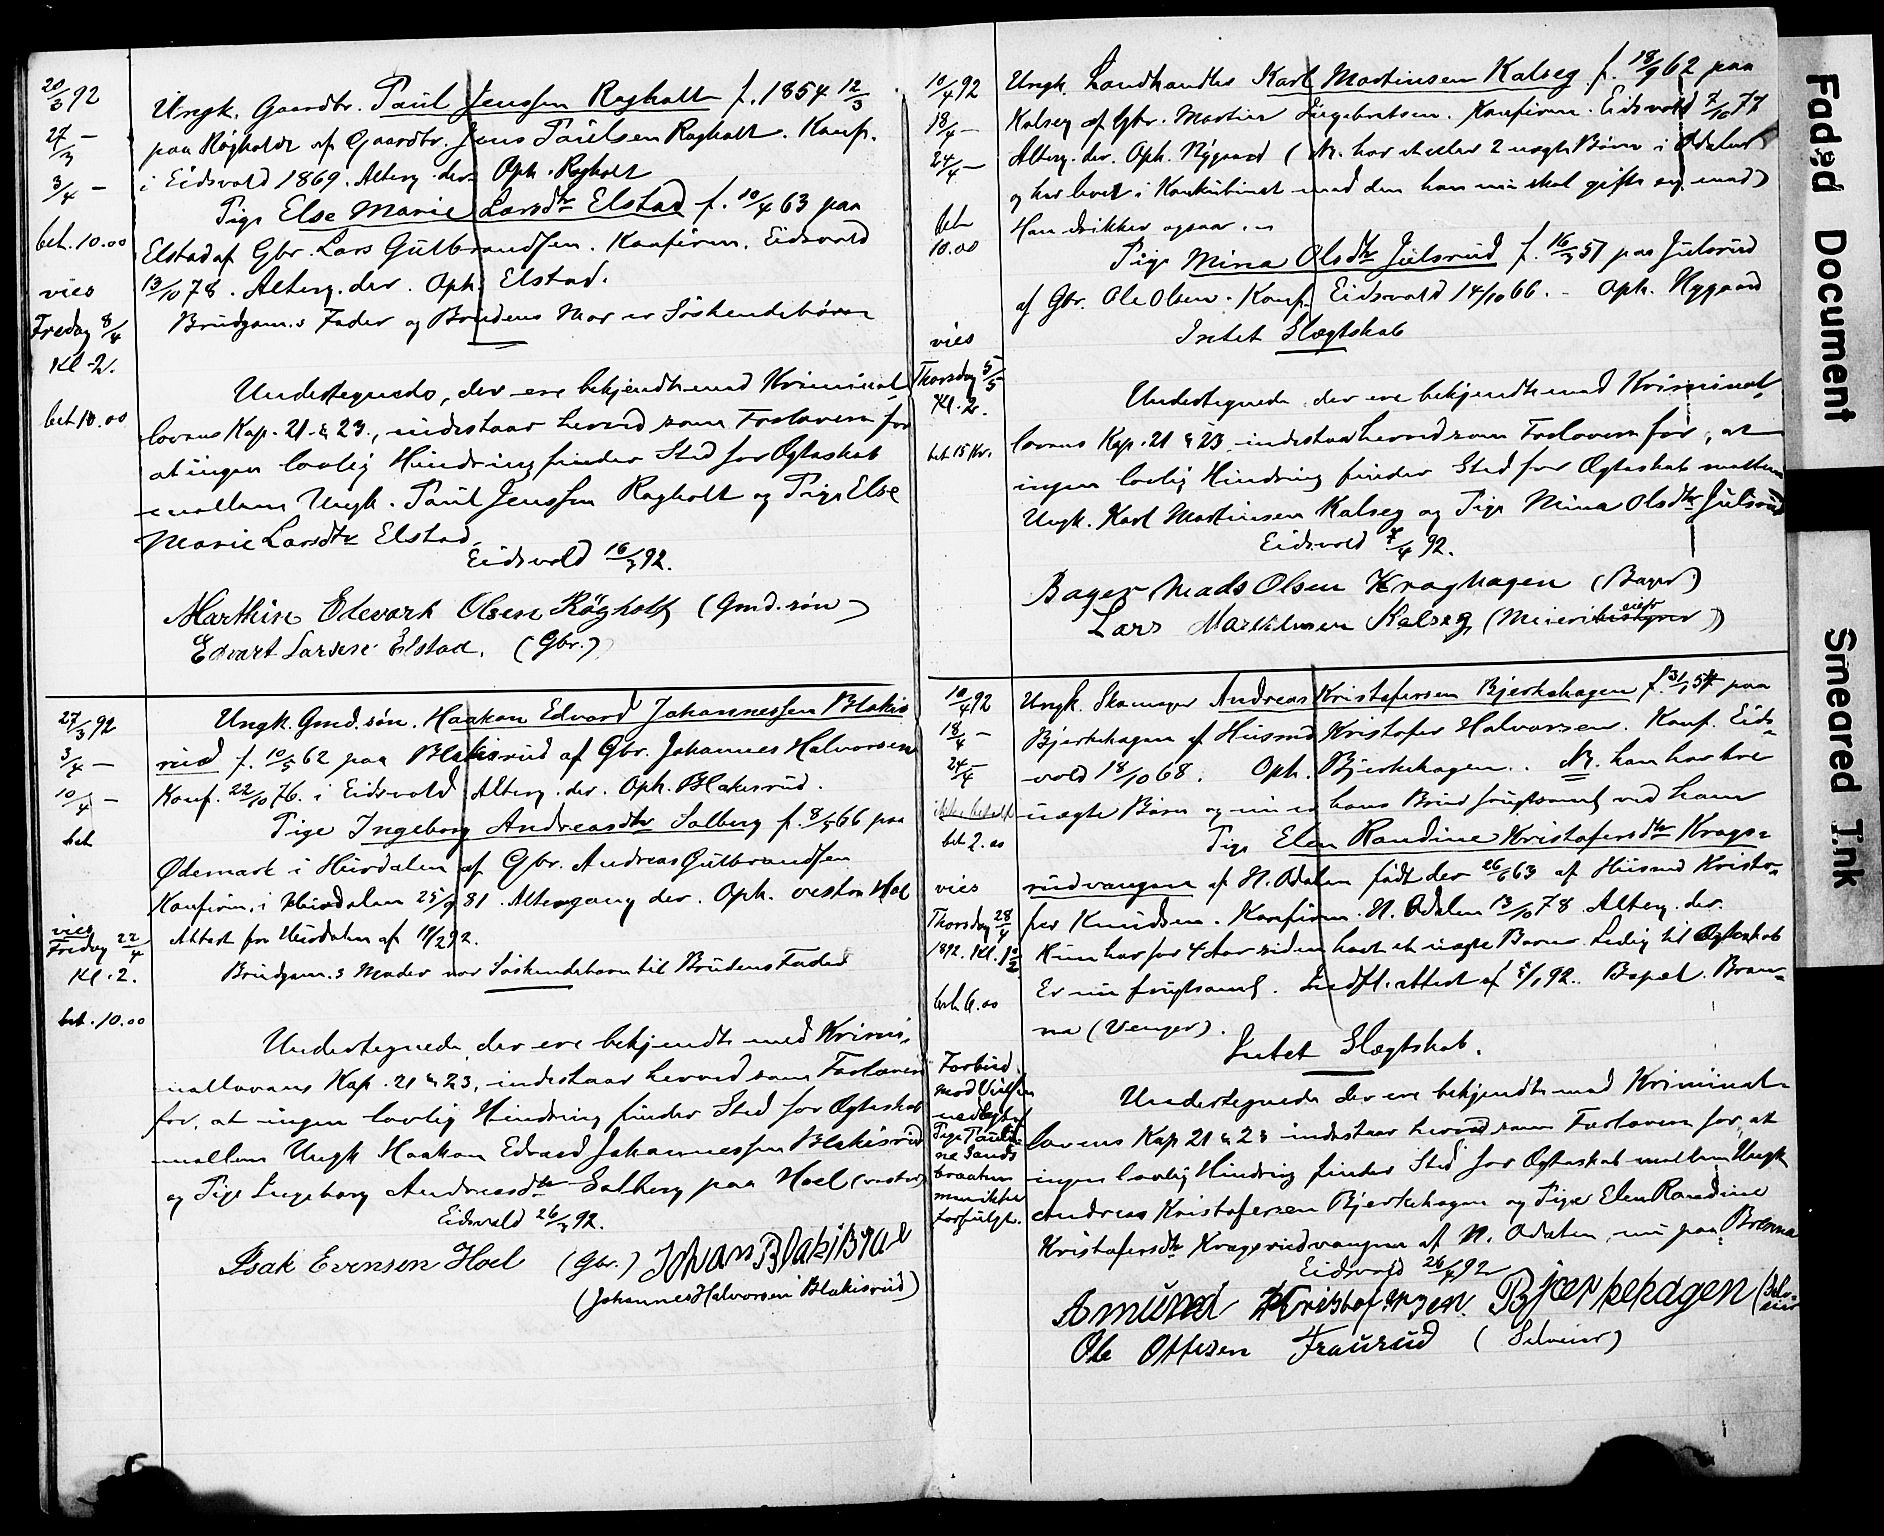 20/3 92
27/3 —
3/4 —
bet. 10.00
vies
Fredag 8/4
Kl. 2.
bet 10.00
Ungk. Gaardbr. Paul Jenssen Ragholt f. 1854 12/3
paa Røgholdt af Gaardbr. Jens Paulsen Ragholt. Konf.
i Eidsvold 1869. Alterg. der. Oph. Ragholt
Pige Else Marie Larsdtr Elstad f. 10/4 63 paa
Elstad af Gbr. Lars Gulbrandsen. Konfirm. Eidsvold
13/10 78. Alterg. der. Oph. Elstad.
Brudgom.s Fader og Brudens Mor er Søskendebørn
Undertegnede, der ere bekjendte med Kriminal-
lovens Kap. 21 & 23, indestaar herved som Forlovere for
at ingen lovlig Hindring finder Sted for Ægteskab
mellem Ungk. Paul Jenssen Ragholt og Pige Else
Marie Larsdtr Elstad.
Eidsvold 16/3 92.
Marthin Edevart Olsen Røgholt (Gmd.søn)
Edvart Larsen Elstad. (Gbr.)
27/3 92
3/4 —
10/4 —
bet
vies
Fredag 22/4
Kl. 2.
bet. 10.00
Ungk. Gmd.søn. Haakon Edvard Johannessen Blakis
rud f. 10/5 62 paa Blakisrud af Gbr. Johannes Halvorsen
Konf. 22/10 76. i Eidsvold. Alterg. der. Oph. Blakisrud.
Pige Ingeborg Andreasdtr Solberg f. 8/5 66 paa
Ødemark i Hurdalen af Gbr. Andreas Gulbrandsen
Konfirm. i Hurdalen 25/9 81. Altergang der. Oph. vestre Hoel
Attest fra Hurdalen af 19/2 92.
Brudgom.s Moder var Søskendebarn til Brudens Fader
Undertegnede, der ere bekjendte med Krimi-
nallovens Kap. 21 & 23, indestaar herved som Forlovere
for, at ingen lovlig Hindring finder Sted for Ægteskab
mellem Ungk Haakon Edvard Johannessen Blakisrud
og Pige Ingeborg Andreasdtr Solberg paa Hoel (vestre)
Eidsvold 26/3 92.
Isak Evensen Hoel (Gbr.) Johans Blakisrud
(Johannes Halvorsen Blakisrud)
10/4 92
18/4 —
24/4 —
bet
10.00
vies
Thorsdag 5/5
Kl. 2.
bet 15 Kr.
Ungk. Landhandler Karl Martinsen Kalseg f. 18/9 62 paa
Kalseg af Gbr. Martin Engebretsen. Konfirm. Eidsvold 7/10 77
Alterg. der. Oph. Nygaard (NB. har et eller 2 uægte Børn i Odalen
og har levet i Konkubinat med den han nu skal gifte sig med)
Han drikker ogsaa
Pige Mina Olsdtr Julsrud f. 16/3 51 paa Julsrud
af Gbr. Ole Olsen. Konf. Eidsvold 14/10 66. - Oph. Nygaard
Intet Slægtskab
Undertegnede, der ere bekjendte med Kriminal-
lovens Kap. 21 & 23 indestaa herved som Forlovere for, at
ingen lovlig Hindring finder Sted for Ægteskab mellem
Ungk. Karl Martinsen Kalseg og Pige Mina Olsdtr Julsrud
Eidsvold 7/4 92.
Bager Mads Olsen Kraghagen (Bager)
Lars Martinsen Kalseg (Meieribestyrer)
10/4 92
18/4 —
24/4 —
ikke betalt
bet 2.00
vies
Thorsdag 28/4
1892. Kl. 1 1/2
bet. 6.00
Forbud
mod Vielsen
nedlagt af
Pige Pauli-
ne Sands
braaten
men ikke
forfulgt.
Ungk. Skomager Andreas Kristofersen Bjerkehagen f. 31/1 54 paa
Bjerkehagen af Husmd Kristofer Halvorsen. Konf. Eids-
vold 18/10 68. Oph. Bjerkehagen. NB. han har tre
uægte Børn og nu er hans Brud frugtsomlig ved ham
Pige Elen Randine Kristofersdtr Krags-
rudvangen af N. Odalen født der 26/ 63 af Husmd Kristo-
fer Knudsen. Konfirm. N. Odalen 13/10 78. Alterg. der.
Hun har for 4 Aar siden havt et uægte Barn. Ledig til Ægteskab
Er nu frugtsomlig. Indfl. attest af 5/1 92. Bopæl. Bræn-
na (Venger).
Intet Slægtskab.
Undertegnede der ere bekjendte med Kriminal-
lovens Kap 21 & 23 indestaar herved som Forlovere for, at
ingen lovlig Hindring finder Sted for Ægteskab mellem Ungk
Andreas Kristofersen Bjerkehagen og Pige Elen Randine
Kristofersdtr Kragsrudvangen af N. Odalen, nu paa Brænna
Eidsvold 26/4 92
Amund Kristofersen Bjærkehagen (Selv-
eier
Ole Ottesen Fraurud (Selveier)
Faded Document
Smeared Ink